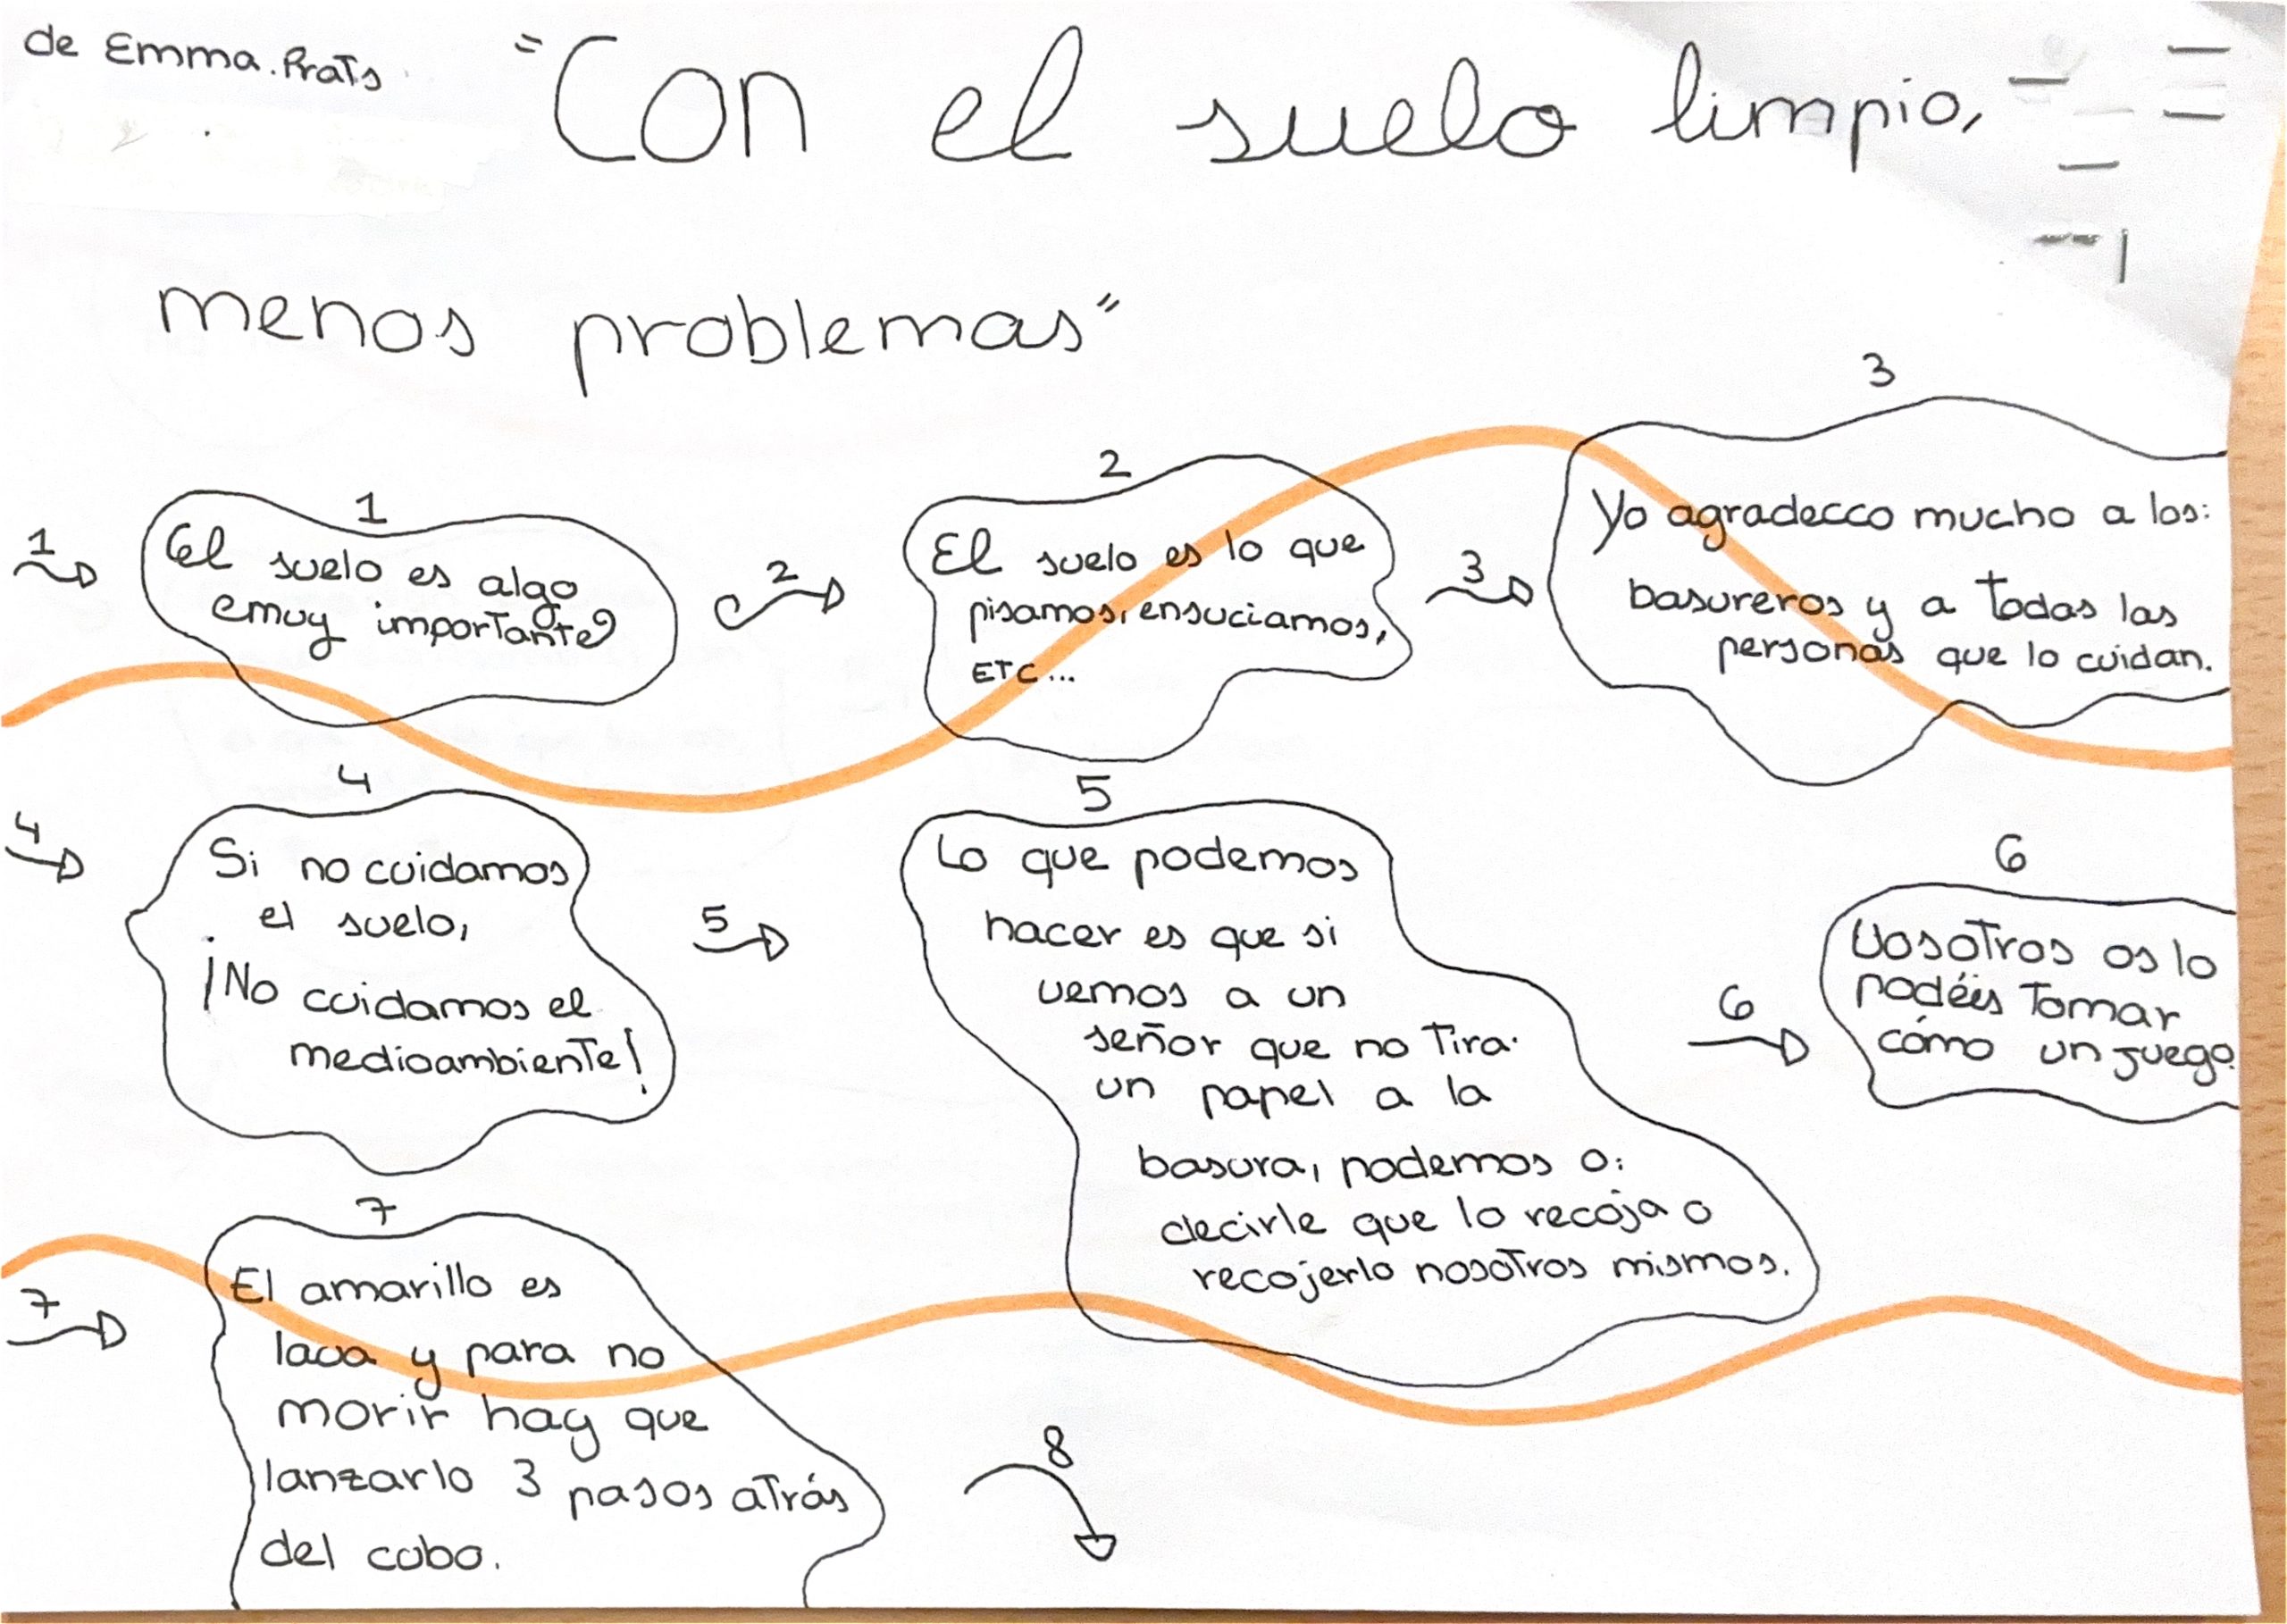 de Emma.Prats
"Con el suelo limpio,
menos problemas"
1
1
El suelo es algo
muy importante
2
2
El suelo es lo que
pisamos, ensuciamos,
ETC...
3
3
Yo agradecco mucho a los:
basureros y a todas las
personas que lo cuidan.
4
4
Si no cuidamos
el suelo,
¡No cuidamos el
medioambiente!
5
5
Lo que podemos
hacer es que si
vemos a un
señor que no tira
un papel a la
basura, podemos o:
decirle que lo recoja o
recojerlo nosotros mismos.
6
6
Vosotros os lo
podéis tomar
cómo un juego.
7
7
El amarillo es
lava y para no
morir hay que
lanzarlo 3 pasos atrás
del cubo.
8